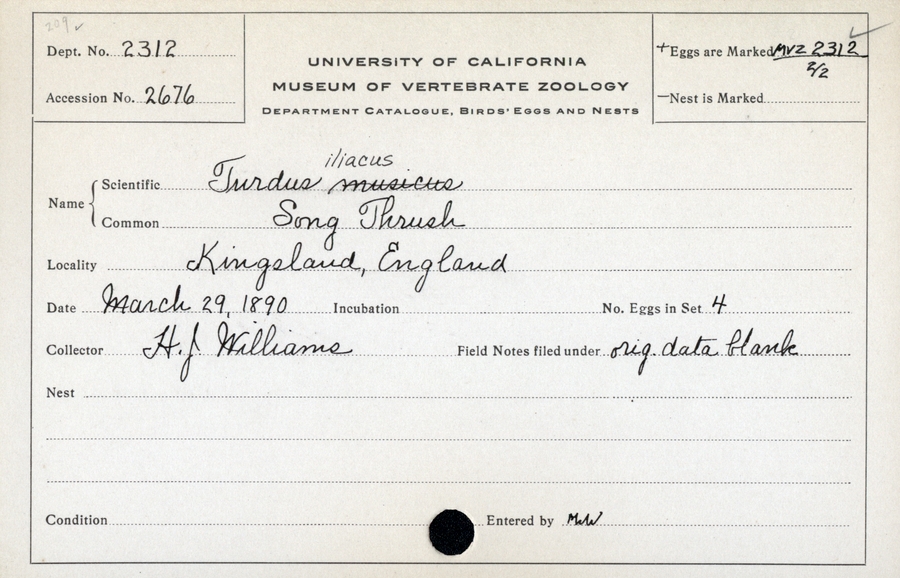 209 ✓
Dept. No. 2312
Accession No. 2676
UNIVERSITY OF CALIFORNIA
MUSEUM OF VERTEBRATE ZOOLOGY
DEPARTMENT CATALOGUE, BIRDS' EGGS AND NESTS
+Eggs are Marked MVZ 2312
2/2
—Nest is Marked
iliacus
Name { Scientific Turdus musicus
Common Song Thrush
Locality Kingsland, England
Date March 29, 1890 Incubation No. Eggs in Set 4
Collector H. J. Williams Field Notes filed under orig. data blank
Nest
Condition Entered by